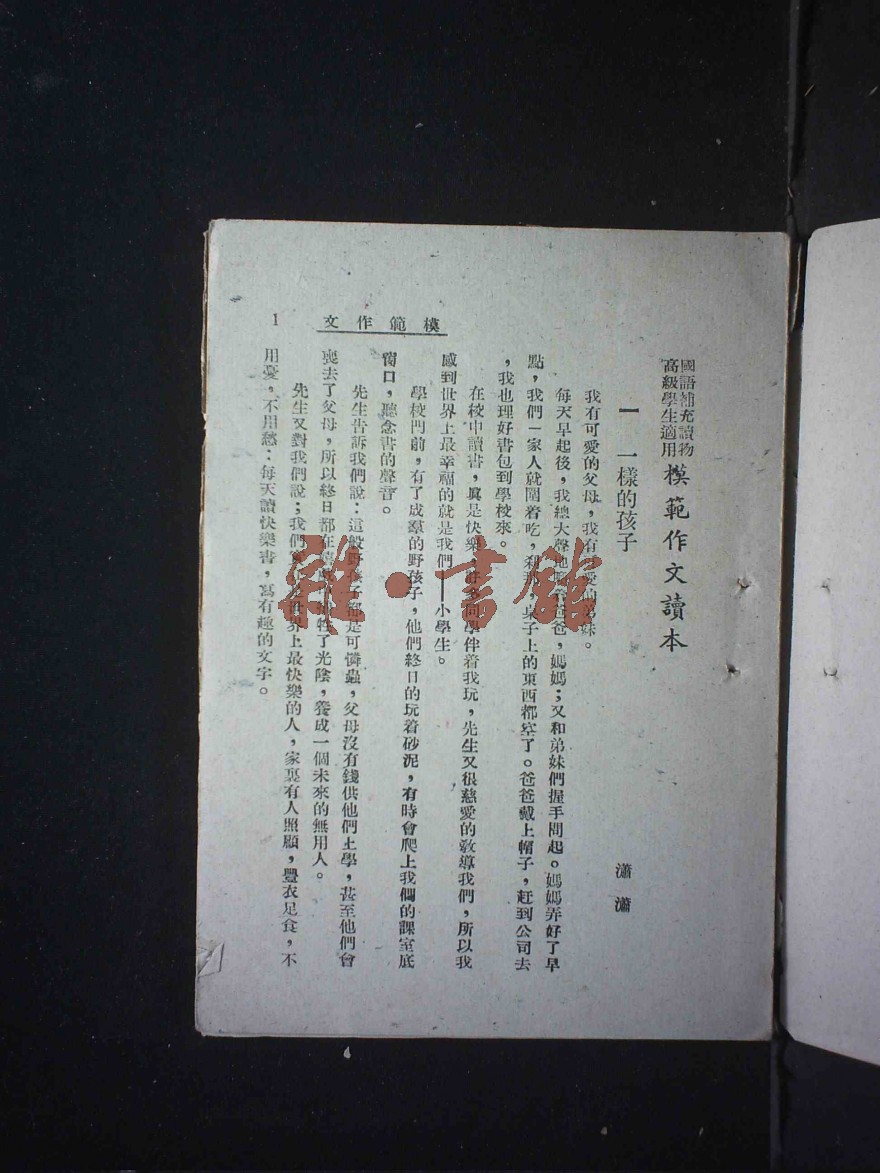 國語補充讀物
高級學生適用
模範作文讀本
一 一樣的孩子
瀟瀟
我有可愛的父母,我有可愛的弟妹。
每天早起後,我總大聲地 爸爸,媽媽;又和弟妹們握手問起。媽媽弄好了早
點,我們一家人就圍着吃,刹那,桌子上的東西都空了。爸爸戴上帽子,赶到公司去
,我也理好書包到學校來。
在校中讀書,眞是快樂, 同學伴着我玩,先生又很慈愛的敎導我們,所以我
感到世界上最幸福的就是我們——小學生。
學校門前,有了成羣的野孩子,他們終日的玩着砂泥,有時會爬上我們的課室底
窗口,聽念書的聲音。
先生告訴我們說:這般野孩子都是可憐蟲,父母沒有錢供他們上學,甚至他們會
喪去了父母,所以終日都在 了光陰,養成一個未來的無用人。
先生又對我們說;我們 世界上最快樂的人,家裏有人照顧,豐衣足食,不
用憂,不用愁:每天讀快樂書,寫有趣的文字。
模範作文
1
雜·書館